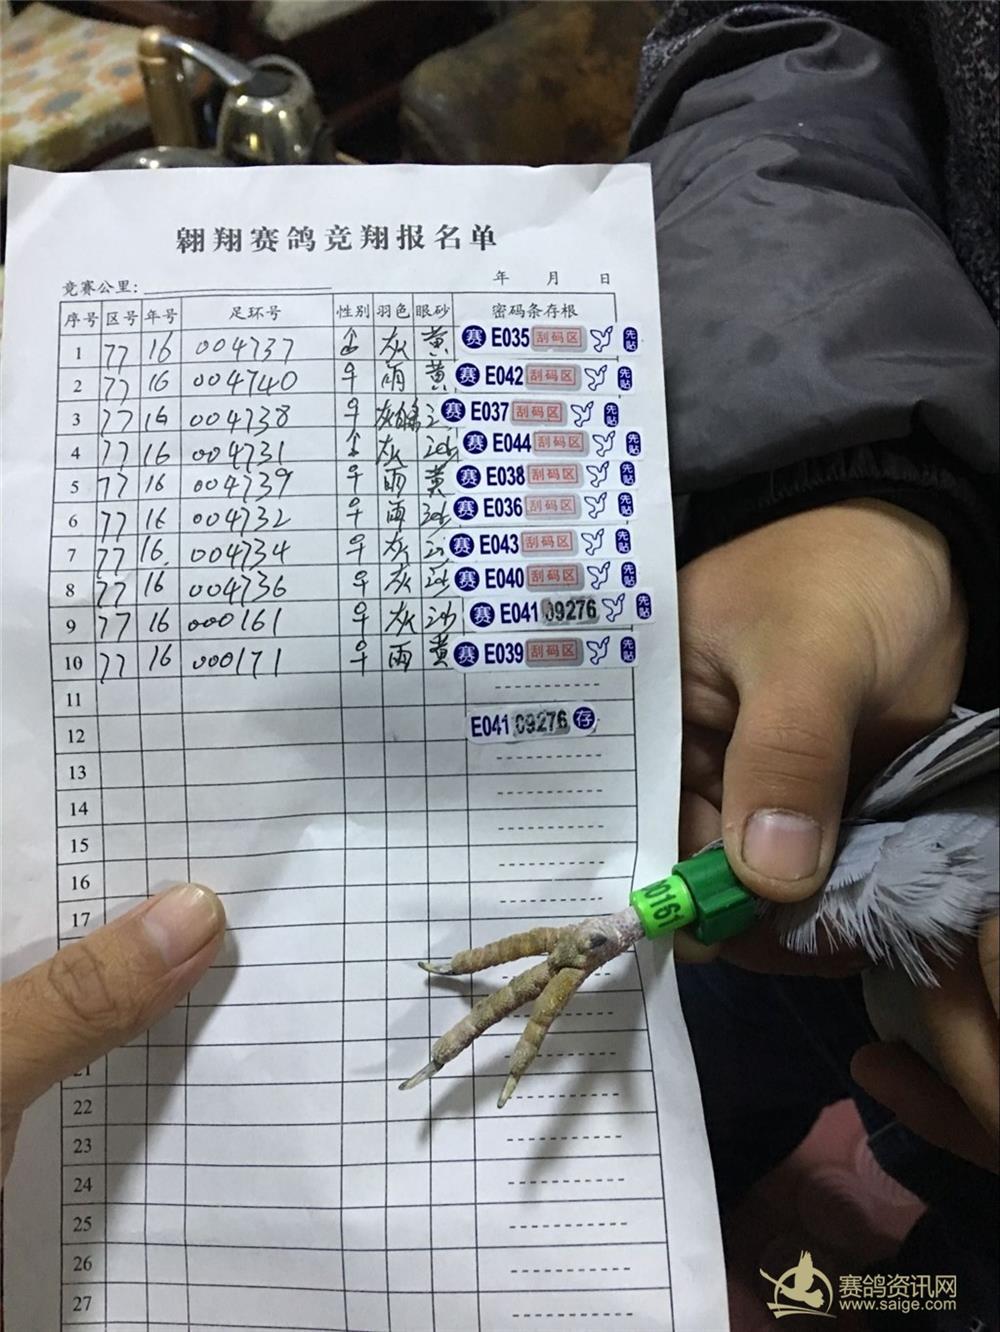 翱翔赛鸽竞翔报名单
竞赛公里: 年 月 日
序号 区号 年号 足环号 性别 羽色 眼砂 密码条存根
1 77 16 004737 灰 黄 赛 E035 刮码区 先贴
2 77 16 004740 雨 黄 赛 E042 刮码区 先贴
3 77 16 004738 赛 E037 刮码区 先贴
4 77 16 004731 灰 赛 E044 刮码区 先贴
5 77 16 004739 雨 黄 赛 E038 刮码区 先贴
6 77 16 004732 雨 赛 E036 刮码区 先贴
7 77 16 004734 灰 赛 E043 刮码区 先贴
8 77 16 004736 灰 沙 赛 E040 刮码区 先贴
9 77 16 000161 灰 沙 赛 E041 09276 先贴
10 77 16 000171 雨 黄 赛 E039 刮码区 先贴
11
12 E041 09276 存
13
14
15
16
17
00161
21
22
23
24
25
26
27
赛鸽资讯网
www.saige.com